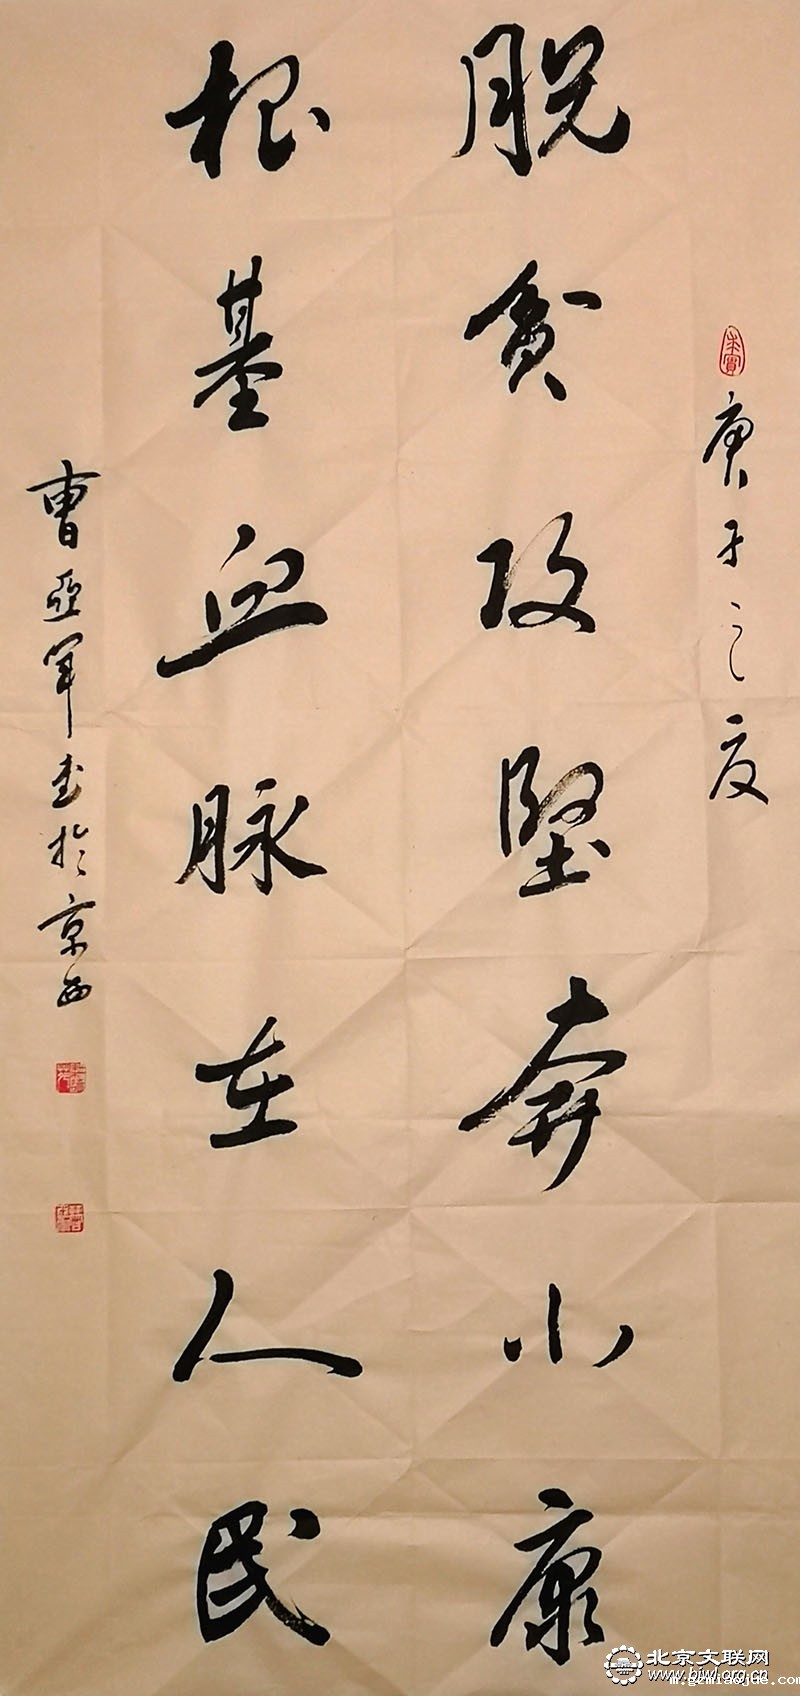 庚子之夏
脱贫攻坚奔小康
根基血脉在人民
曹亚军书于京西
北京文联网
www.bjwl.org.cn
m.gzmiaojue.com